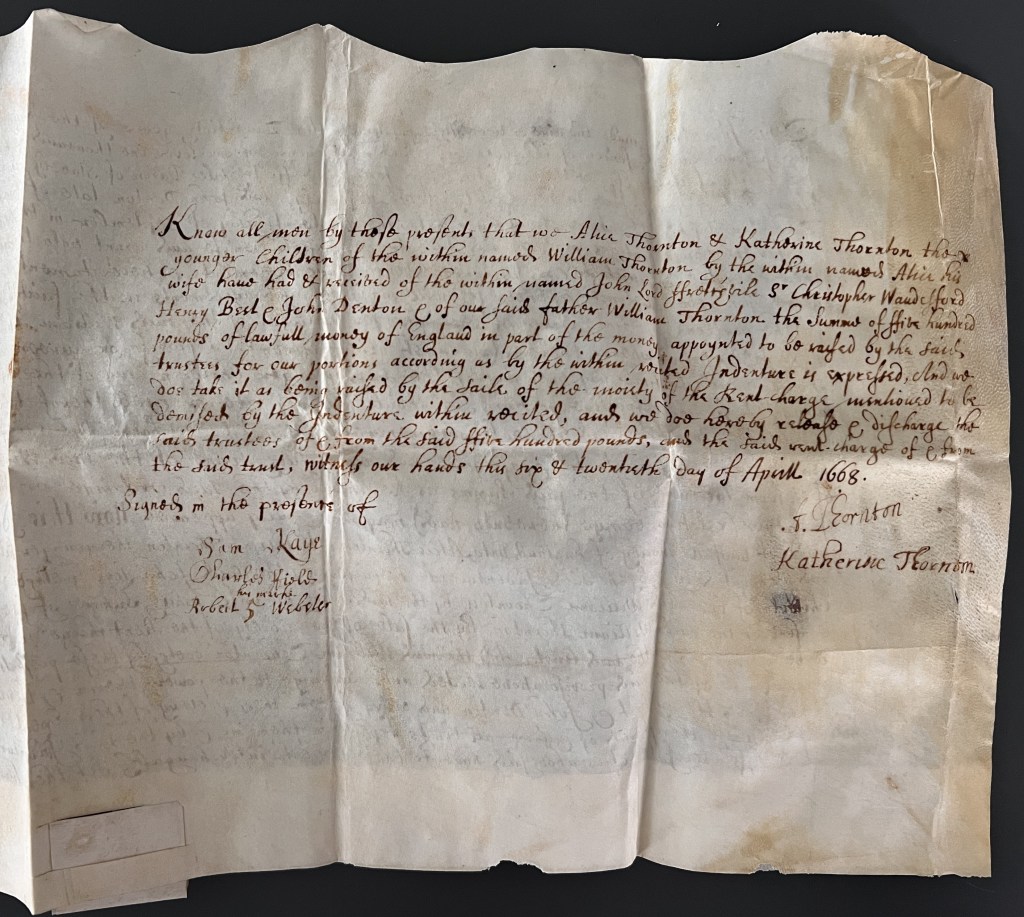 Know all men by these presents that we Alice Thornton & Katherine Thornton the
younger Children of the within named William Thornton by the within named Alice his
wife have had & received of the within named John Lord ffretzvile Sr Christopher Wandesford
Henry Best & John Denton & of our said father William Thornton the Summe of ffive hundred
pounds of lawfull money of England in part of the money appoynted to be raised by the said
trustees for our portions according as by the within recited Indenture is expressed, And we
doe take it as being raised by the saile of the moiety of the Rent-charge mentioned to be
demised by the Indenture within recited, and we doe hereby release & discharge the
said trustees of & from the said ffive hundred pounds, and the said rent-charge of & from
the said trust, witness our hands this six & twentieth day of Aprill 1668.
Signed in the presence of
Thornton
Sam Kaye
Katherine Thornton
Charles Field
his marke
Robert Webster